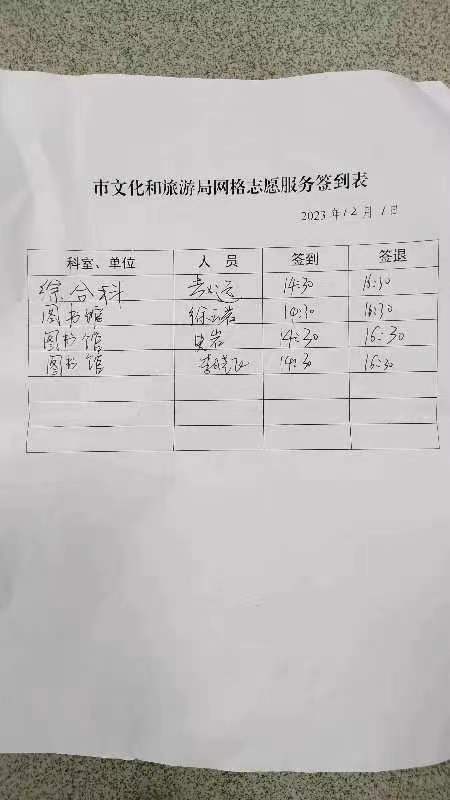 市文化和旅游局网格志愿服务签到表
2023 年 12 月 1 日
科室、单位 人 员 签到 签退
综合科 14:30 16:30
图书馆 徐云岩 14:30 16:30
图书馆 史岩 14:30 16:30
图书馆 李晓 14:30 16:30